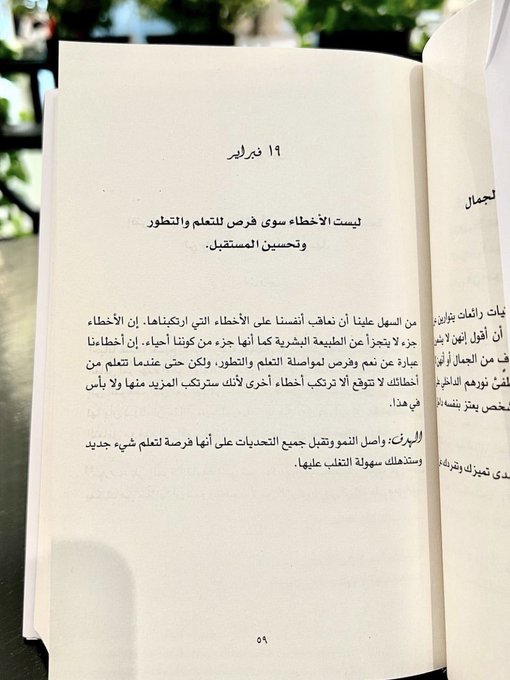 ١٩ فبراير
ليست الأخطاء سوى فرص للتعلم والتطور
وتحسين المستقبل.
من السهل علينا أن نعاقب أنفسنا على الأخطاء التي ارتكبناها. إن الأخطاء
جزء لا يتجزأ عن الطبيعة البشرية كما أنها جزء من كوننا أحياء. إن أخطاءنا
عبارة عن نعم وفرص لمواصلة التعلم والتطور، ولكن حتى عندما تتعلم من
أخطائك لا تتوقع ألا ترتكب أخطاء أخرى لأنك سترتكب المزيد منها ولا بأس
في هذا.
الهدف: واصل النمو وتقبل جميع التحديات على أنها فرصة لتعلم شيء جديد
وستذهلك سهولة التغلب عليها.
٥٩
الجمال
رائعات يتوارين
أن أقول إنهن لا
من الجمال أو أنهن
نورهم الداخلي
شخص يعتز بنفسه
تميزك وتفردك